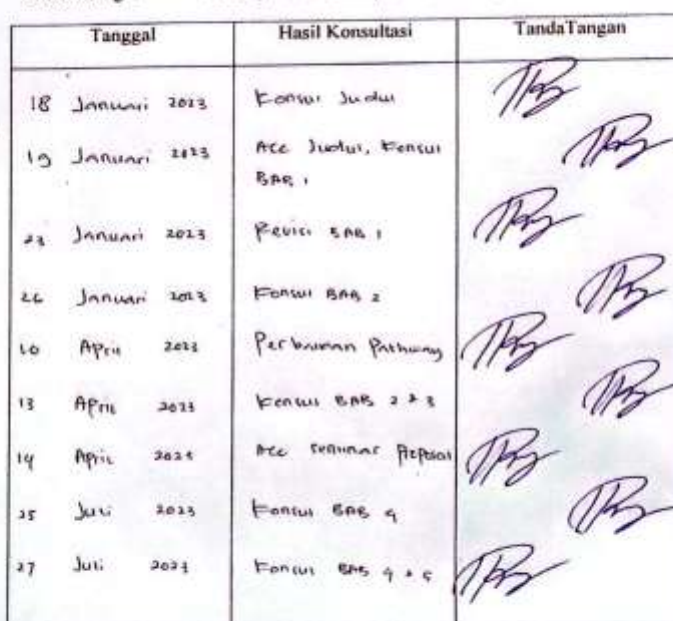 Tanggal Hasil Konsultasi TandaTangan
18 Januari 2023 Konsul Judul
19 Januari 2023 Acc Judul, Konsul
BAB 1
23 Januari 2023 Revisi BAB 1
26 Januari 2023 Konsul BAB 2
10 April 2023 Perbaikan Pathway
13 April 2023 Konsul BAB 2 & 3
14 April 2023 Acc seminar Proposal
25 Juli 2023 Konsul BAB 4
27 Juli 2023 Konsul BAB 4 & 5